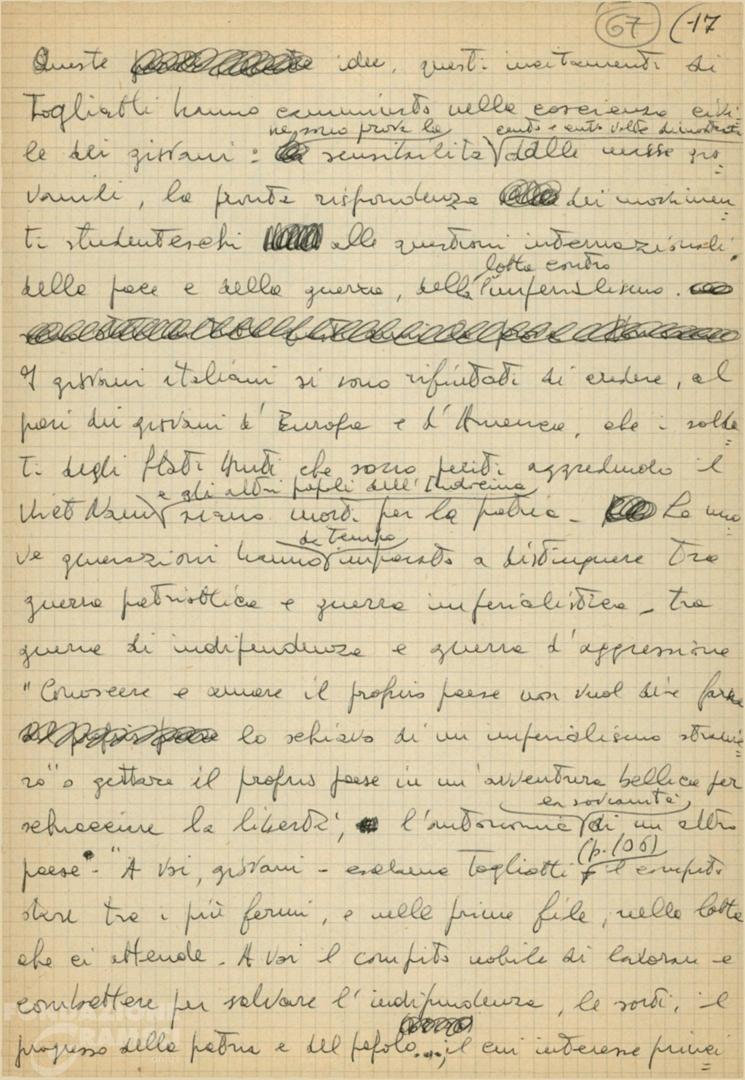 67 (17
Queste idee, questi incitamenti di
Togliatti hanno camminato nella coscienza civi=
ne sono prova la cento e cento volte dimostrata
le dei giovani: sensibilità delle masse gio=
vanili, la pronta rispondenza dei movimen=
ti studenteschi alle questioni internazionali
lotta contro
della pace e della guerra, della l'imperialismo.
I giovani italiani si sono rifiutati di credere, al
pari dei giovani d'Europa e d'America, che i solda=
ti degli Stati Uniti che sono periti aggredendo il
e gli altri popoli dell'Indocina
Viet Nam siano morti per la patria. Le nuo=
di tempo
ve generazioni hanno imparato a distinguere tra
guerra patriottica e guerra imperialistica, tra
guerra di indipendenza e guerra d'aggressione
"Conoscere e amare il proprio paese non vuol dire farne
lo schiavo di un imperialismo stranie=
ro" o gettare il proprio paese in un'avventura bellica per
e la sovranità
schiacciare la libertà, l'autonomia di un altro
(p. 106)
paese. "A voi, giovani - esclama Togliatti il compito
stare tra i più fermi, e nelle prime file, nella lotta
che ci attende. A voi il compito nobile di lavorare e
combattere per salvare l'indipendenza, le sorti, il
progresso della patria e del popolo...; il cui interesse princi=